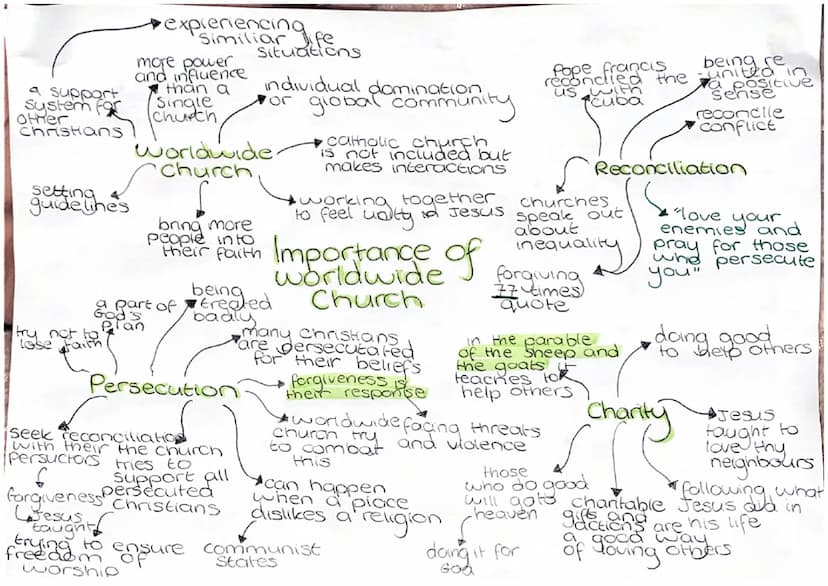 Importance of
worldwide
Church
worldwide
church
a support
system for
other
christians
experiencing
similiar life
situations
more power
and influence
than a
single
church
individual domination
or global community
catholic church
is not included but
makes interactions
working together
to feel unity in Jesus
bring more
people into
their faith
setting
guidelines
Reconciliation
Pope francis
reconciled the
us with
cuba
being re
-united in
a positive
sense
reconcile
conflict
"love your
enemies and
pray for those
who persecute
you"
churches
speak out
about
inequality
forgiving
77 times
quote
Persecution
try not to
lose faith
a part of
God's
plan
being
treated
badly
many christians
are persecutated
for their beliefs
forgiveness is
their response
facing threats
and violence
worldwide
church try
to combat
this
can happen
when a place
dislikes a religion
communist
states
the church
tries to
support all
persecuted
Christians
trying to ensure
freedom of
worship
seek reconciliation
with their
persuctors
forgiveness
Jesus
taught
Charity
in the parable
of the sheep and
the goats it
teaches to
help others
doing good
to help others
Jesus
taught to
love thy
neighbours
following what
Jesus did in
his life
charitable
gifts and
actions are
a good way
of loving others
those
who do good
will go to
heaven
doing it for
God